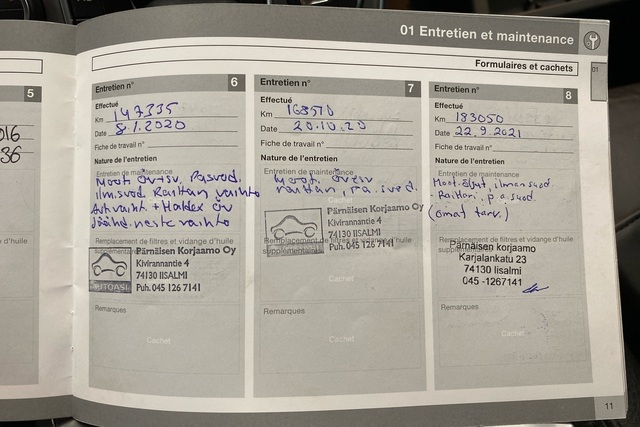 01 Entretien et maintenance
Formulaires et cachets
01
5
016
36
e d'huile
Entretien n° 6
Effectué
Km 147335
Date 8.1.2020
Fiche de travail n°
Nature de l'entretien
Entretien de maintenance
Moot
ilm.suod. Raittan vaihto
+ Haldex öv
neste vaihto
Remplacement de filtres et vidange d'huile
Pärnäisen Korjaamo Oy
Kivirannantie 4
74130 IISALMI
Puh. 045 126 7141
AUTOASI
Remarques
Cachet
Entretien n° 7
Effectué
Km 168570
Date 20.10.20
Fiche de travail n°
Nature de l'entretien
Entretien de maintenance
Moot. öv+sv
raittan, pa. suod.
Pärnäisen Korjaamo Oy
Kivirannantie 4
74130 IISALMI
Puh. 045 126 7141
Remplacement de filtres et vidange d'huile
supplémentaire
Cachet
Remarques
Cachet
Entretien n° 8
Effectué
Km 183050
Date 22.9.2021
Fiche de travail n°
Nature de l'entretien
Entretien de maintenance
Moot. ilman suod.
Raittan. p.a. suod
(omat tarv.)
Remplacement de filtres et vidange d'huile
Pärnäisen korjaamo
Karjalankatu 23
74130 Iisalmi
045 -1267141
Remarques
Cachet
11